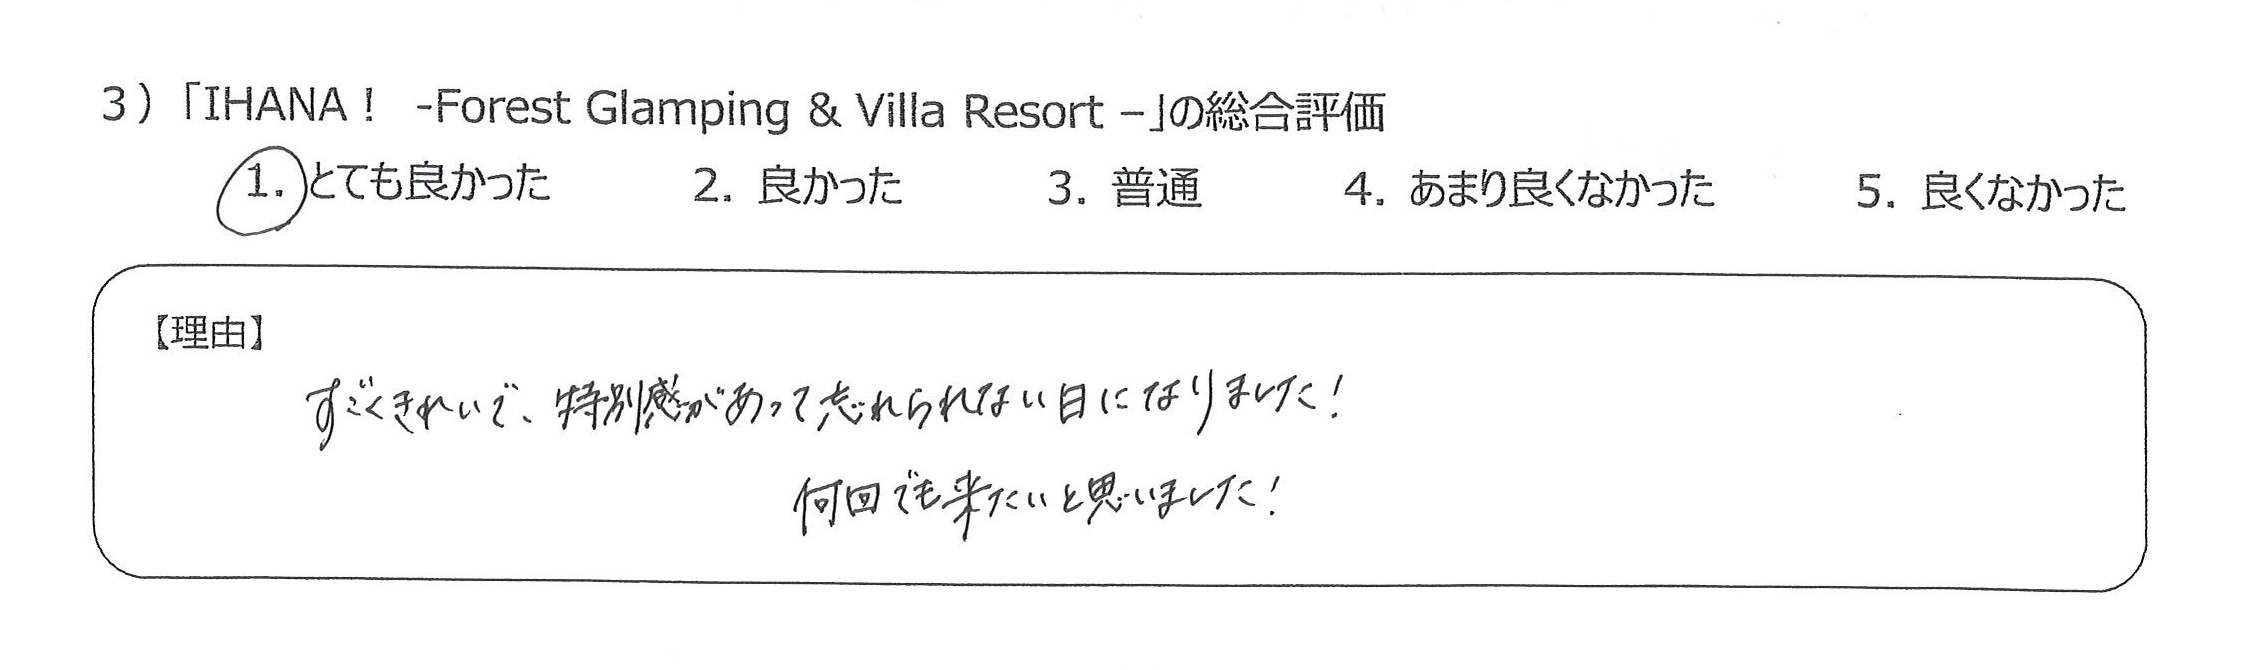 3）「IHANA！ -Forest Glamping & Villa Resort –」の総合評価
1. とても良かった 2. 良かった 3. 普通 4. あまり良くなかった 5. 良くなかった
【理由】
すごくきれいで、特別感があって忘れられない日になりました!
何回でも来たいと思いました!